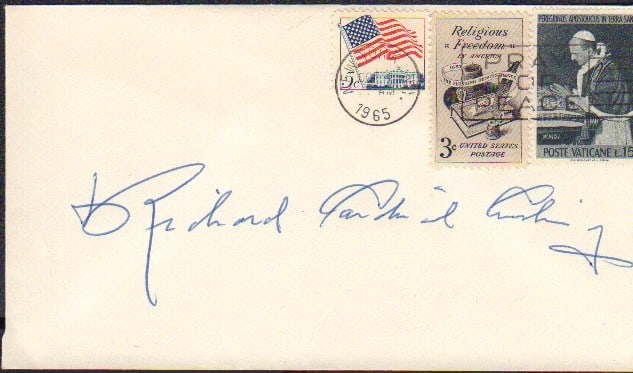 5c
1965
Religious
Freedom
IN AMERICA
3¢ UNITED STATES
POSTAGE
PEREGRINUS APOSTOLICUS IN TERRA SAN
POSTE VATICANE L.15
PRAY
FOR
PEACE
+ Richard Cardinal Cushing